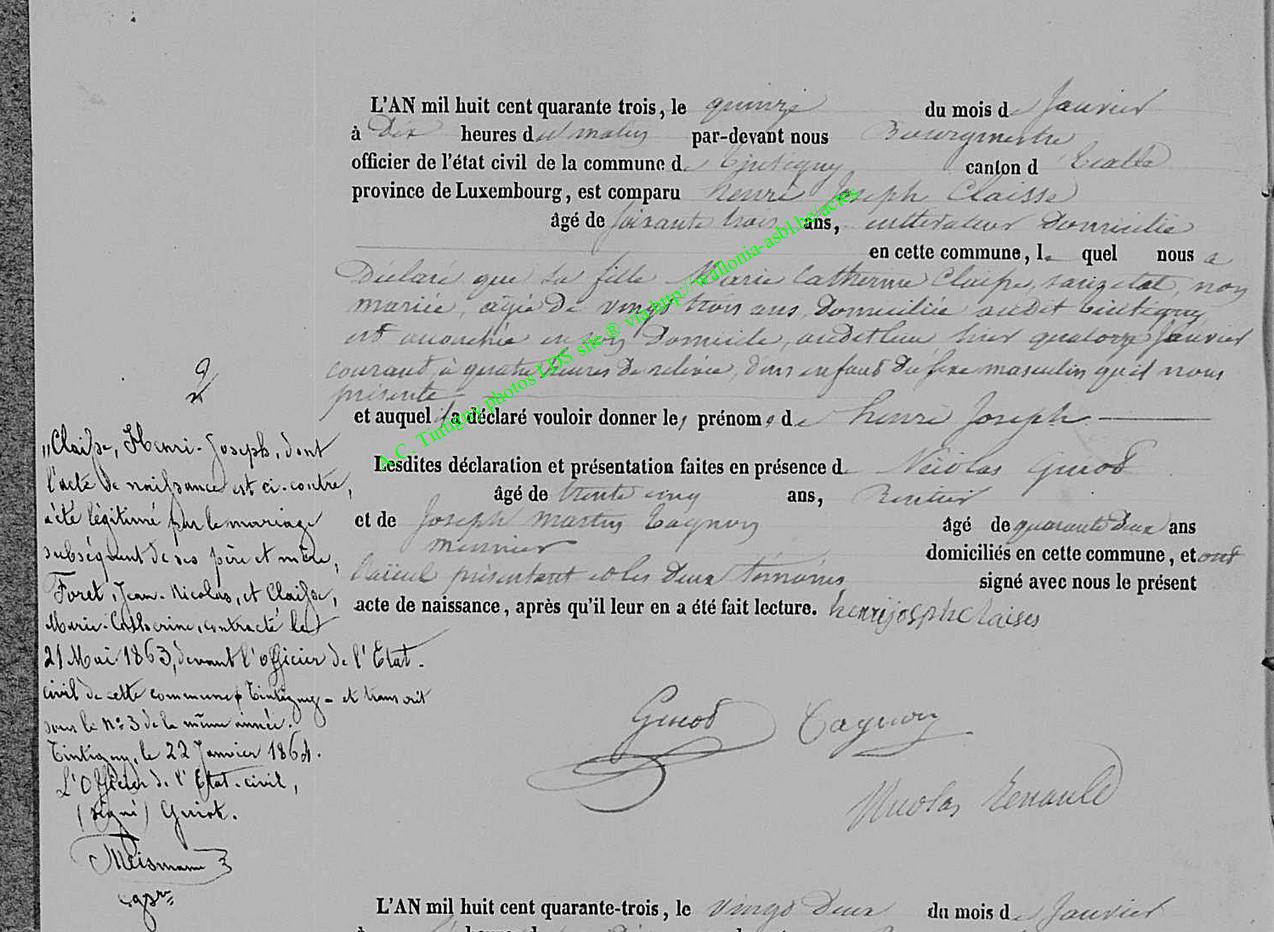 L'AN mil huit cent quarante trois, le quinze du mois de Janvier
à Dix heures du matin par-devant nous Bourgmestre
officier de l'état civil de la commune de Tintigny canton d'Etalle
province de Luxembourg, est comparu henri Joseph Claisse
âgé de soixante trois ans, cultivateur Domicilié
en cette commune, le quel nous a
Déclaré que sa fille Marie Catherine Claisse, sans état, non
mariée, agée de vingt trois ans, Domiciliée audit Tintigny
est accouchée en son Domicile, audit lieu hier quatorze Janvier
courant, à quatre heures de relevée, d'un enfant du sexe masculin qu'il nous
présente
et auquel il a déclaré vouloir donner les prénoms de henri Joseph
Lesdites déclaration et présentation faites en présence de Nicolas Guiot
âgé de trente cinq ans, Rentier
et de Joseph Martin Tagnon âgé de quarante deux ans
meunier domiciliés en cette commune, et ont
l'aïeul présentant et les deux témoins signé avec nous le présent
acte de naissance, après qu'il leur en a été fait lecture. henrijosphclaises
Guiot Tagnon
Nicolas Renauld
2
"Claisse, Henri-Joseph, dont
l'acte de naissance est ci-contre,
a été légitimé par le mariage
subséquent de ses père et mère,
Foret, Jean-Nicolas, et Claisse,
Marie-Catherine, contracté le
21 Mai 1863, devant l'Officier de l'Etat-
civil de cette commune Tintigny - et transcrit
sous le N° 3 de la même année.
Tintigny, le 22 Janvier 1864.
L'Officier de l'Etat-civil,
(signé) Guiot.
Meismann
A.C. Tintigny photos LDS site ® via http://wallonia-asbl.be/actes
L'AN mil huit cent quarante-trois, le vingt Deux du mois de Janvier